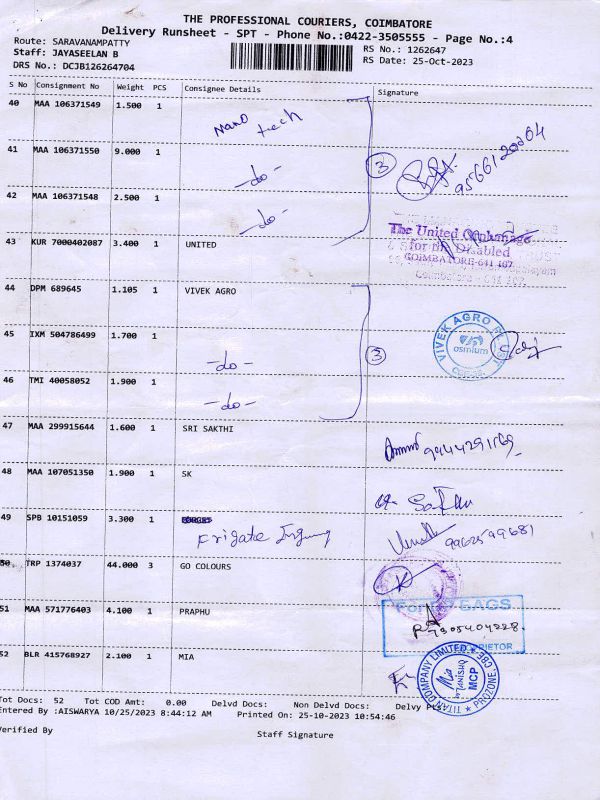 THE PROFESSIONAL COURIERS, COIMBATORE
Delivery Runsheet - SPT - Phone No.:0422-3505555 - Page No.:4
Route: SARAVANAMPATTY
RS No.: 1262647
Staff: JAYASEELAN B
RS Date: 25-Oct-2023
DRS No.: DCJB126264704
S No Consignment No Weight PCS Consignee Details Signature
40 MAA 106371549 1.500 1 Nano tech
41 MAA 106371550 9.000 1 -do- 3 9566120204
42 MAA 106371548 2.500 1 -do-
The United Orphanage
for the Disabled
COIMBATORE-641 107
43 KUR 7000402087 3.400 1 UNITED
44 DPM 689645 1.105 1 VIVEK AGRO
VIVEK AGRO
osinium
45 IXM 504786499 1.700 1 -do- 3
46 TMI 40058052 1.900 1 -do-
47 MAA 299915644 1.600 1 SRI SAKTHI
48 MAA 107051350 1.900 1 SK
49 SPB 10151059 3.300 1 Frigate 9962599681
50 TRP 1374037 44.000 3 GO COLOURS
BAGS
51 MAA 571776403 4.100 1 PRAPHU 7305404228
52 BLR 415768927 2.100 1 MIA
TITAN COMPANY LIMITED ★ PROZONE, CBE ★
Mia
MCP
Tot Docs: 52 Tot COD Amt: 0.00 Delvd Docs: Non Delvd Docs:
Entered By :AISWARYA 10/25/2023 8:44:12 AM Printed On: 25-10-2023 10:54:46
Verified By Staff Signature